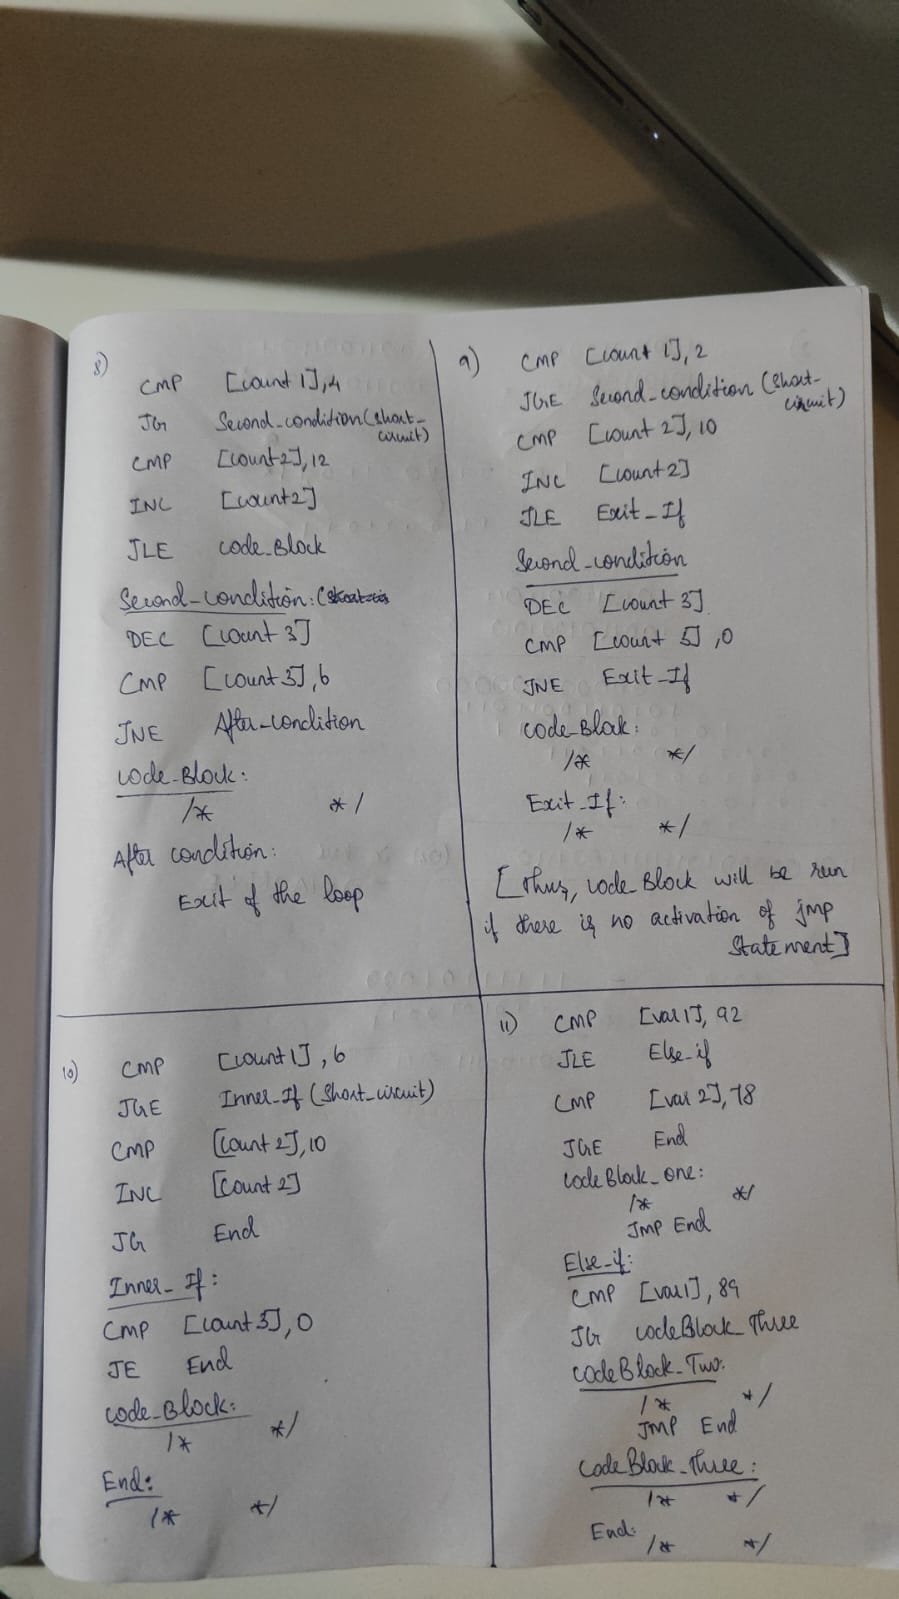 8)
CMP [count 1],4
JG Second_condition (short_
circuit)
CMP [count2],12
INC [count2]
JLE code_Block
Second_condition:
DEC [count 3]
CMP [count3],6
JNE After_condition
code_Block:
/* */
After condition:
Exit of the loop
9)
CMP [count 1],2
JGE Second_condition (Short-
circuit)
CMP [count 2],10
INC [count2]
JLE Exit_If
Second_condition
DEC [count 3]
CMP [count 3],0
JNE Exit_If
code_Block:
/* */
Exit_If:
/* */
[Thus, code Block will be run
if there is no activation of jmp
Statement]
10)
CMP [count 1],6
JGE Inner_If (Short_circuit)
CMP [count 2],10
INC [Count 2]
JG End
Inner_If:
CMP [count 3],0
JE End
code_Block:
/* */
End:
/* */
11)
CMP [val 1],92
JLE Else_if
CMP [val 2],78
JGE End
code Block_one:
/* */
JMP End
Else_if:
CMP [val1],89
JG codeBlock_Three
codeBlock_Two:
/* */
JMP End
CodeBlock_Three:
/* */
End:
/* */